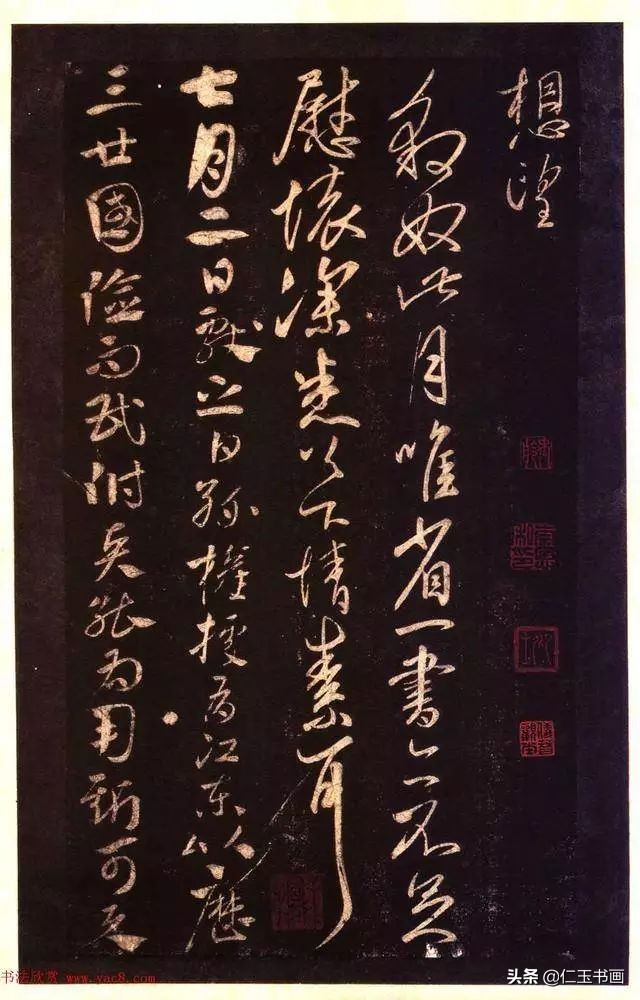 想望
豹奴此月唯省一書亦不足
慰懷下情素耳
七月二日獻之白孫權據有江東以歷
三世國險而民附賢能為用可
书法欣赏 www.yac8.com
头条 @仁玉书画